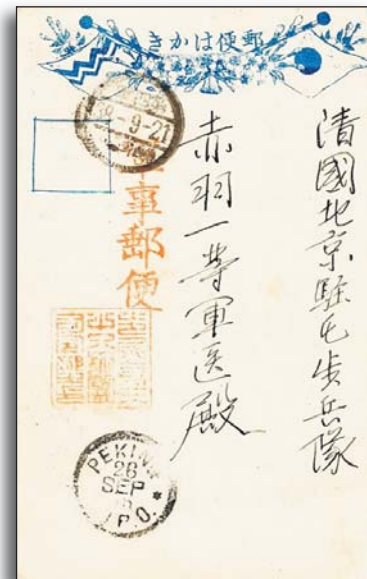 郵便はかき
清國北京駐屯歩兵隊
赤羽一等軍医殿
軍事郵便
9-21
PEKING
26
SEP
I.P.O.